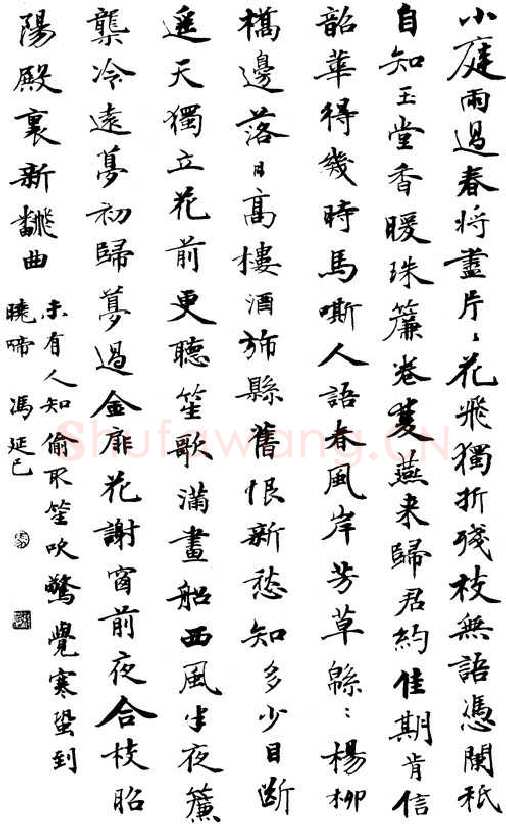 小庭雨過春将盡片〻花飛獨折殘枝無語憑闌衹
自知玉堂香暖珠簾卷雙燕来歸君約佳期肯信
韶華得幾時馬嘶人語春風岸芳草緜〻楊柳
橋邊落日高樓酒斾縣舊恨新愁知多少目断
遥天獨立花前更聽笙歌滿畫船西風半夜簾
櫳冷遠夢初歸夢過金扉花謝窗前夜合枝昭
陽殿裏新翻曲
未有人知偷取笙吹驚覺寒蛩到
曉啼 馮延巳
Shufawang.CN